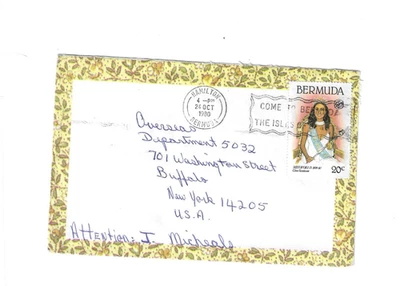 HAMILTON
4 - PM
24 OCT
1980
BERMUDA
COME TO BERMUDA
THE ISLES
BERMUDA
20c
Overseas
Department 5032
701 Washington Street
Buffalo
New York 14205
U.S.A.
Attention: I. Micheals